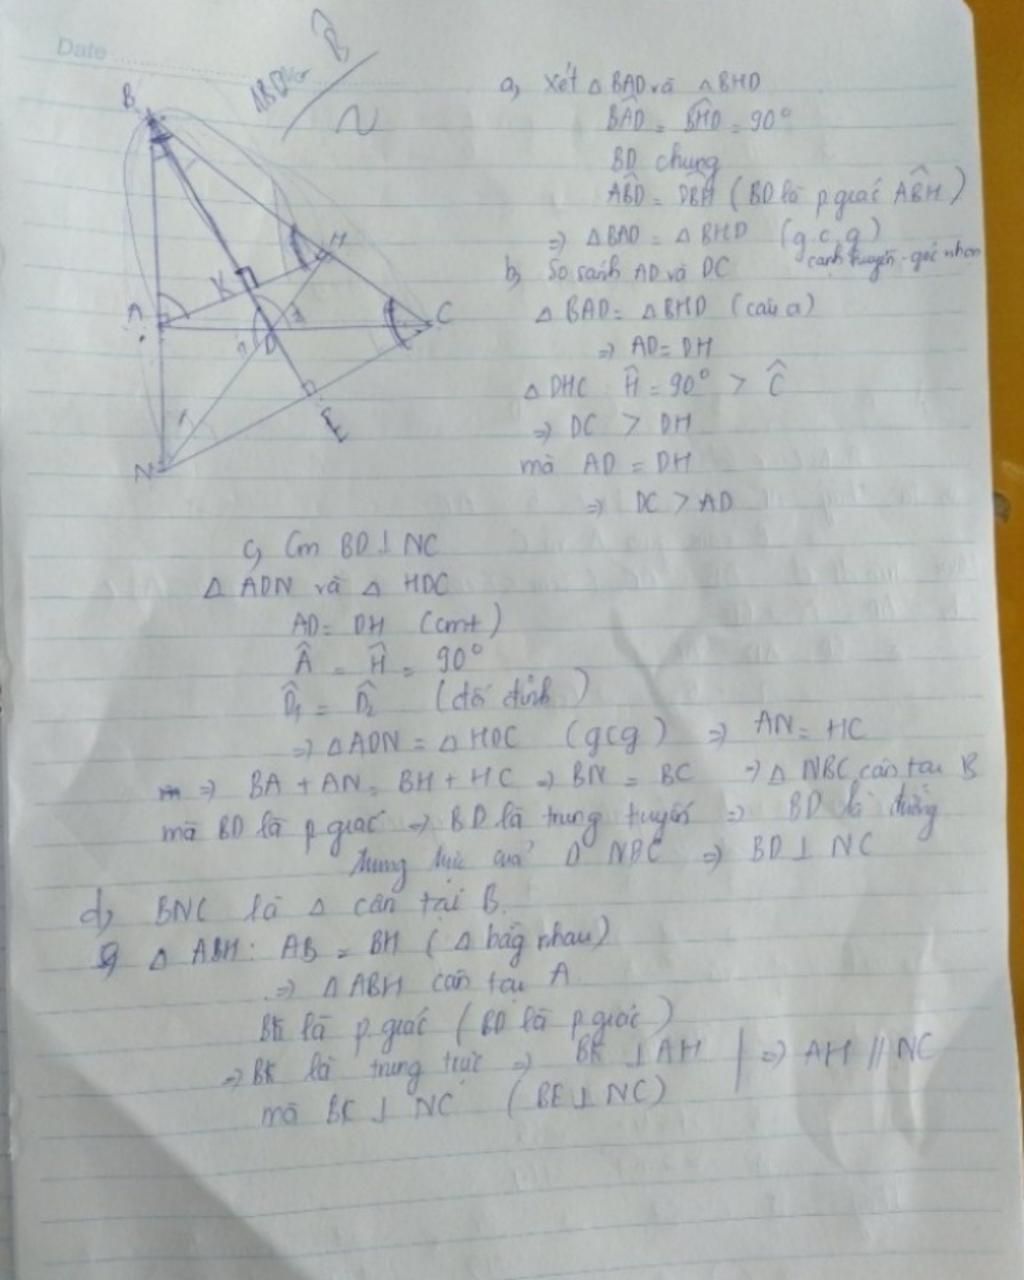 Date
ABD vg B̂
N
B
H
K
A
D
C
2
1
E
N
a, Xét △ BAD và △ BHD
BÂD = BĤD = 90°
BD chung
AB̂D = DB̂H (BD là p.giác AB̂H)
=> △ BAD = △ BHD (g.c.g)
cạnh huyền - góc nhọn
b, So sánh AD và DC
△ BAD = △ BHD (câu a)
=> AD = DH
△ DHC Ĥ = 90° > Ĉ
=> DC > DH
mà AD = DH
=> DC > AD
c, Cm BD ⊥ NC
△ ADN và △ HDC
AD = DH (cmt)
Â = Ĥ = 90°
D̂₁ = D̂₂ (đối đỉnh)
=> △ ADN = △ HDC (gcg) => AN = HC
=> BA + AN = BH + HC => BN = BC => △ NBC cân tại B
mà BD là p giác => BD là trung tuyến => BD là đường
trung trực của △ NBC => BD ⊥ NC
d, BNC là △ cân tại B.
△ ABH: AB = BH (△ bằg nhau)
=> △ ABH cân tại A
BK là p.giác (BD là p.giác)
=> BK là trung trực => BK ⊥ AH | => AH // NC
mà BK ⊥ NC (BE ⊥ NC)